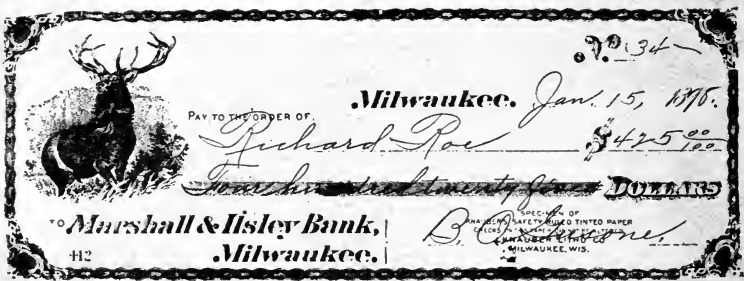 No. 34
Milwaukee. Jan. 15, 1898.
PAY TO THE ORDER OF
Richard Roe $425 00/100
Four hundred twenty five DOLLARS
TO Marshall & Ilsley Bank,
Milwaukee.
412
B. A.
SPECIMEN OF
KNAUBER'S SAFETY RULED TINTED PAPER
CHECKS
KNAUBER LITHO CO
MILWAUKEE, WIS.